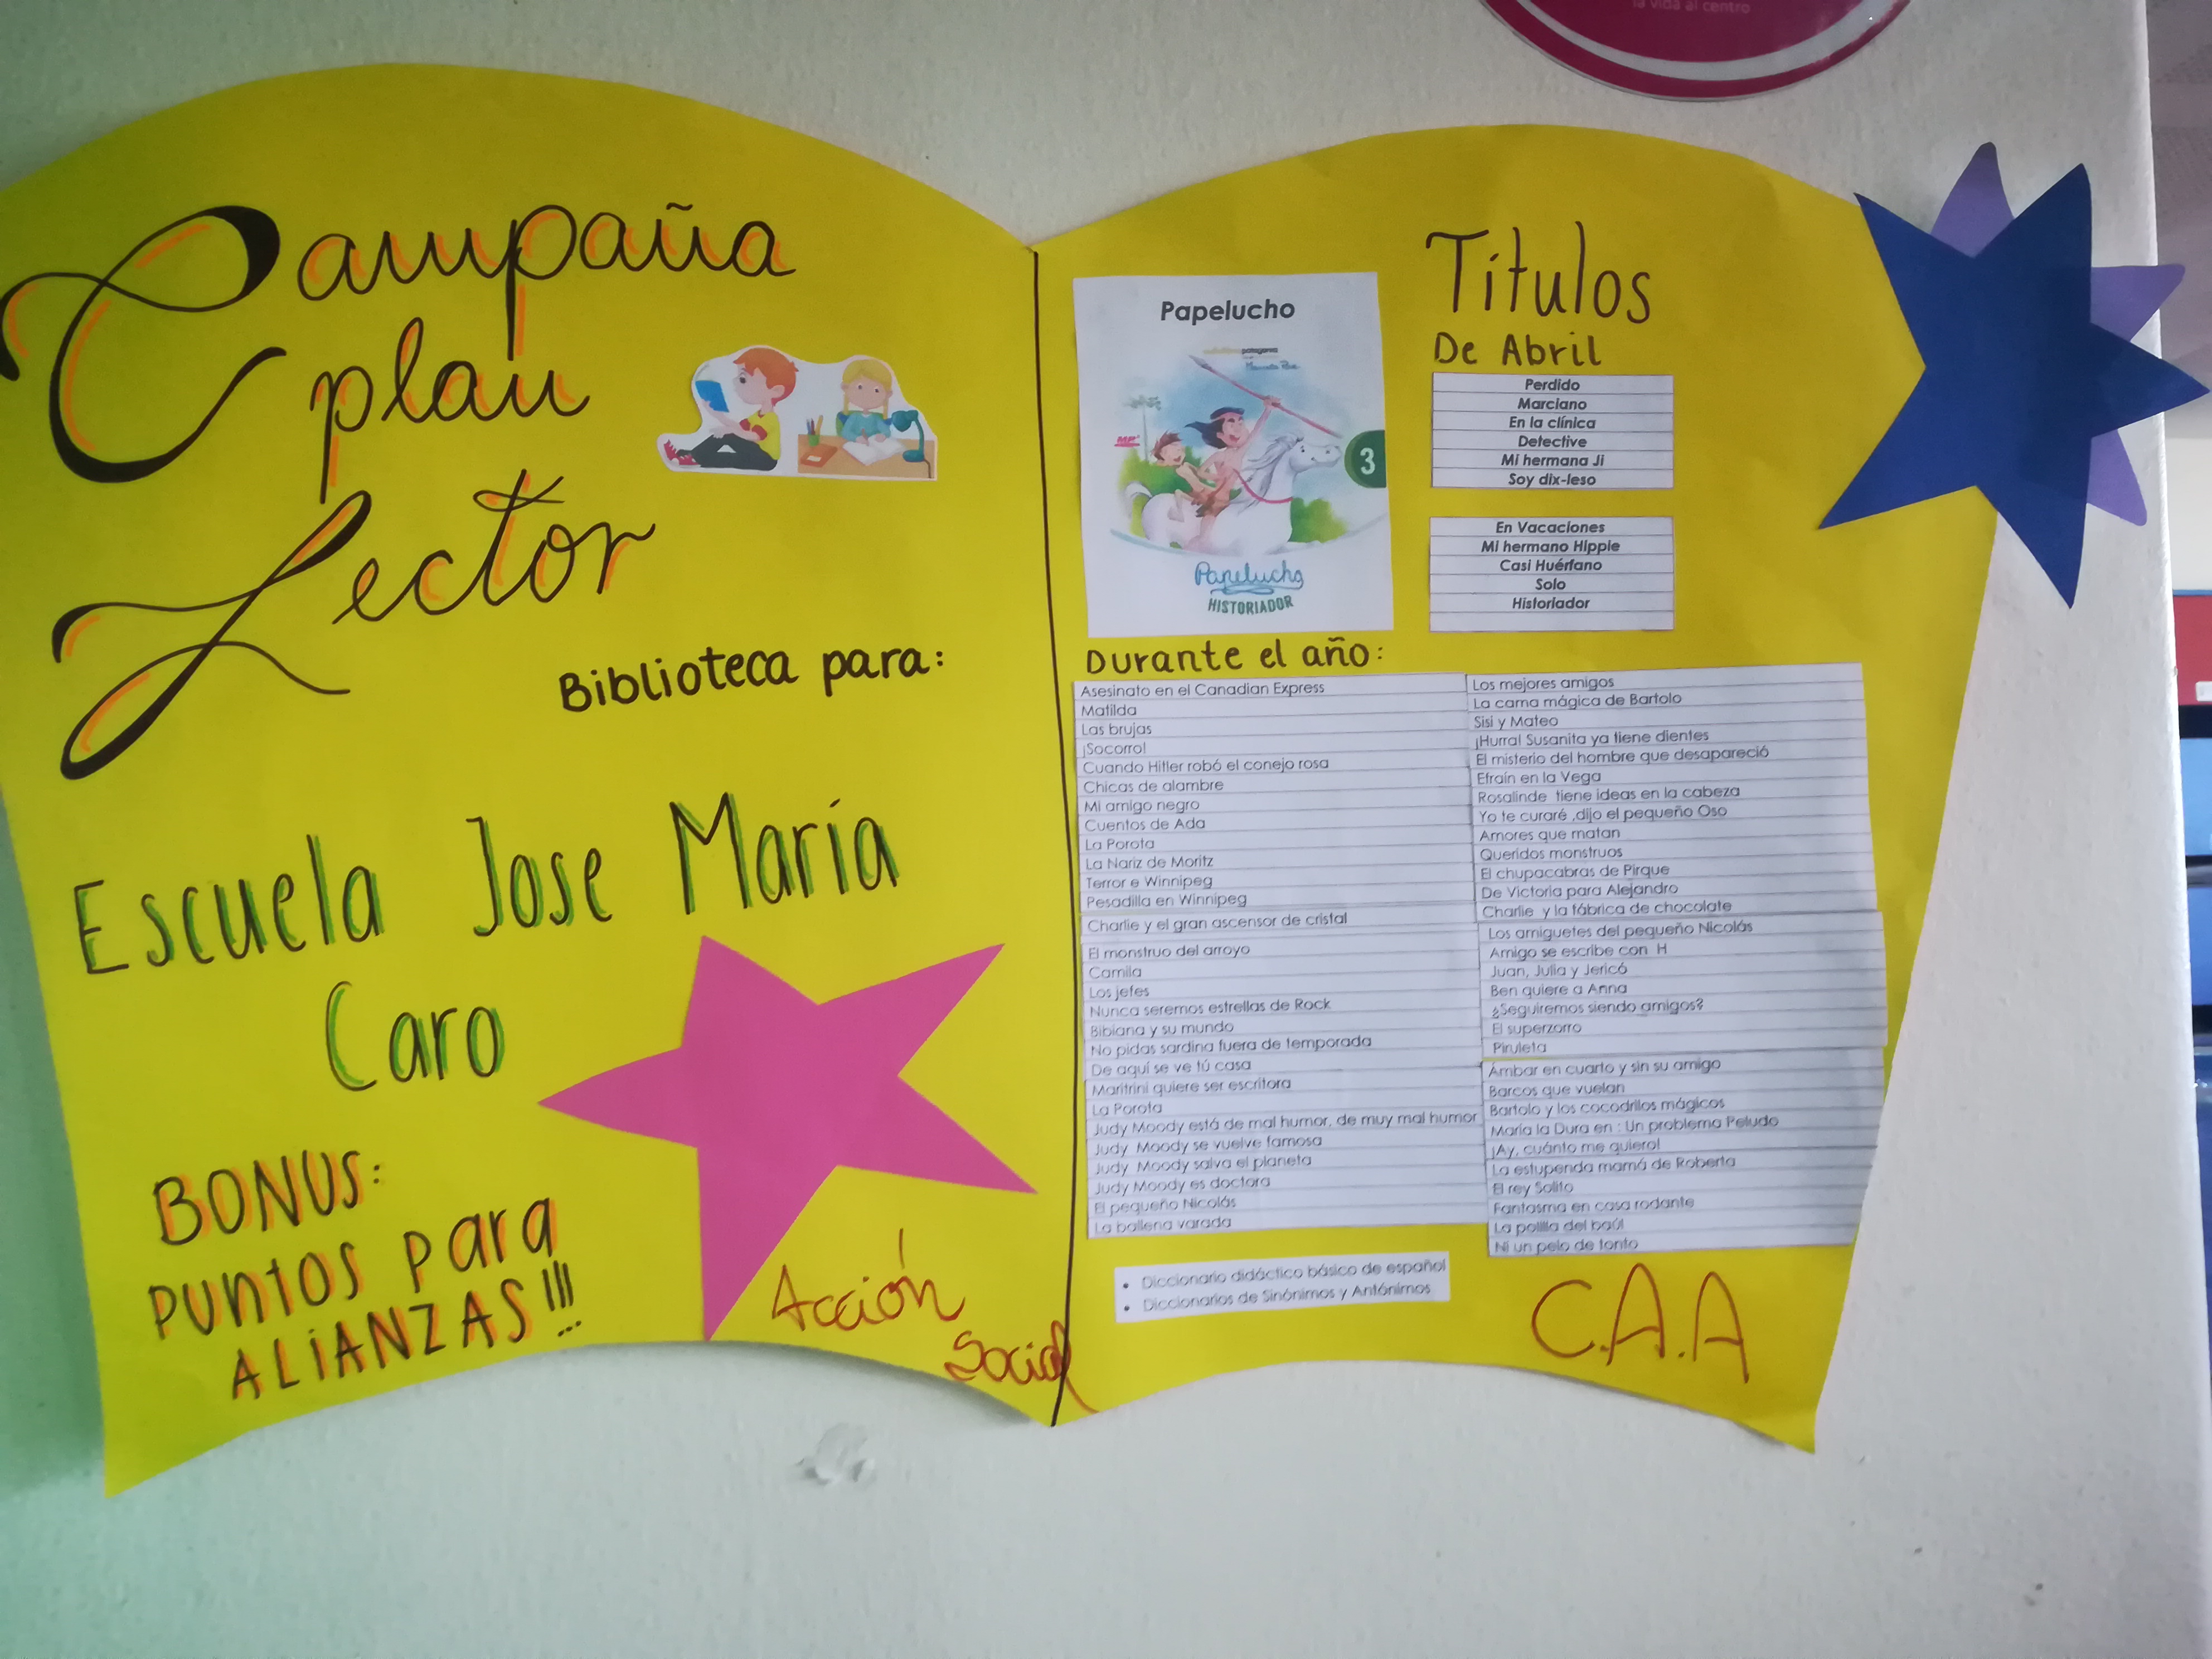 la vida al centro
Campaña
plan
Lector
Biblioteca para:
Escuela Jose María
Caro
BONUS:
PUNTOS PARA
ALIANZAS!!!
Acción
Social
Papelucho
3
Papelucho
HISTORIADOR
Titulos
De Abril
Perdido
Marciano
En la clínica
Detective
Mi hermana Ji
Soy dix-leso
En Vacaciones
Mi hermano Hippie
Casi Huérfano
Solo
Historiador
Durante el año:
Asesinato en el Canadian Express
Matilda
Las brujas
¡Socorro!
Cuando Hitler robó el conejo rosa
Chicas de alambre
Mi amigo negro
Cuentos de Ada
La Porota
La Nariz de Moritz
Terror e Winnipeg
Pesadilla en Winnipeg
Charlie y el gran ascensor de cristal
El monstruo del arroyo
Camila
Los jefes
Nunca seremos estrellas de Rock
Bibiana y su mundo
No pidas sardina fuera de temporada
De aquí se ve tú casa
Maritrini quiere ser escritora
La Porota
Judy Moody está de mal humor, de muy mal humor
Judy Moody se vuelve famosa
Judy Moody salva el planeta
Judy Moody es doctora
El pequeño Nicolás
La ballena varada
Los mejores amigos
La cama mágica de Bartolo
Sisi y Mateo
¡Hurra! Susanita ya tiene dientes
El misterio del hombre que desapareció
Efraín en la Vega
Rosalinde tiene ideas en la cabeza
Yo te curaré ,dijo el pequeño Oso
Amores que matan
Queridos monstruos
El chupacabras de Pirque
De Victoria para Alejandro
Charlie y la fábrica de chocolate
Los amiguetes del pequeño Nicolás
Amigo se escribe con H
Juan, Julia y Jericó
Ben quiere a Anna
¿Seguiremos siendo amigos?
El superzorro
Piruleta
Ámbar en cuarto y sin su amigo
Barcos que vuelan
Bartolo y los cocodrilos mágicos
María la Dura en : Un problema Peludo
¡Ay, cuánto me quiero!
La estupenda mamá de Roberta
El rey Solito
Fantasma en casa rodante
La polilla del baúl
Ni un pelo de tonto
• Diccionario didáctico básico de español
• Diccionarios de Sinónimos y Antónimos
C.A.A